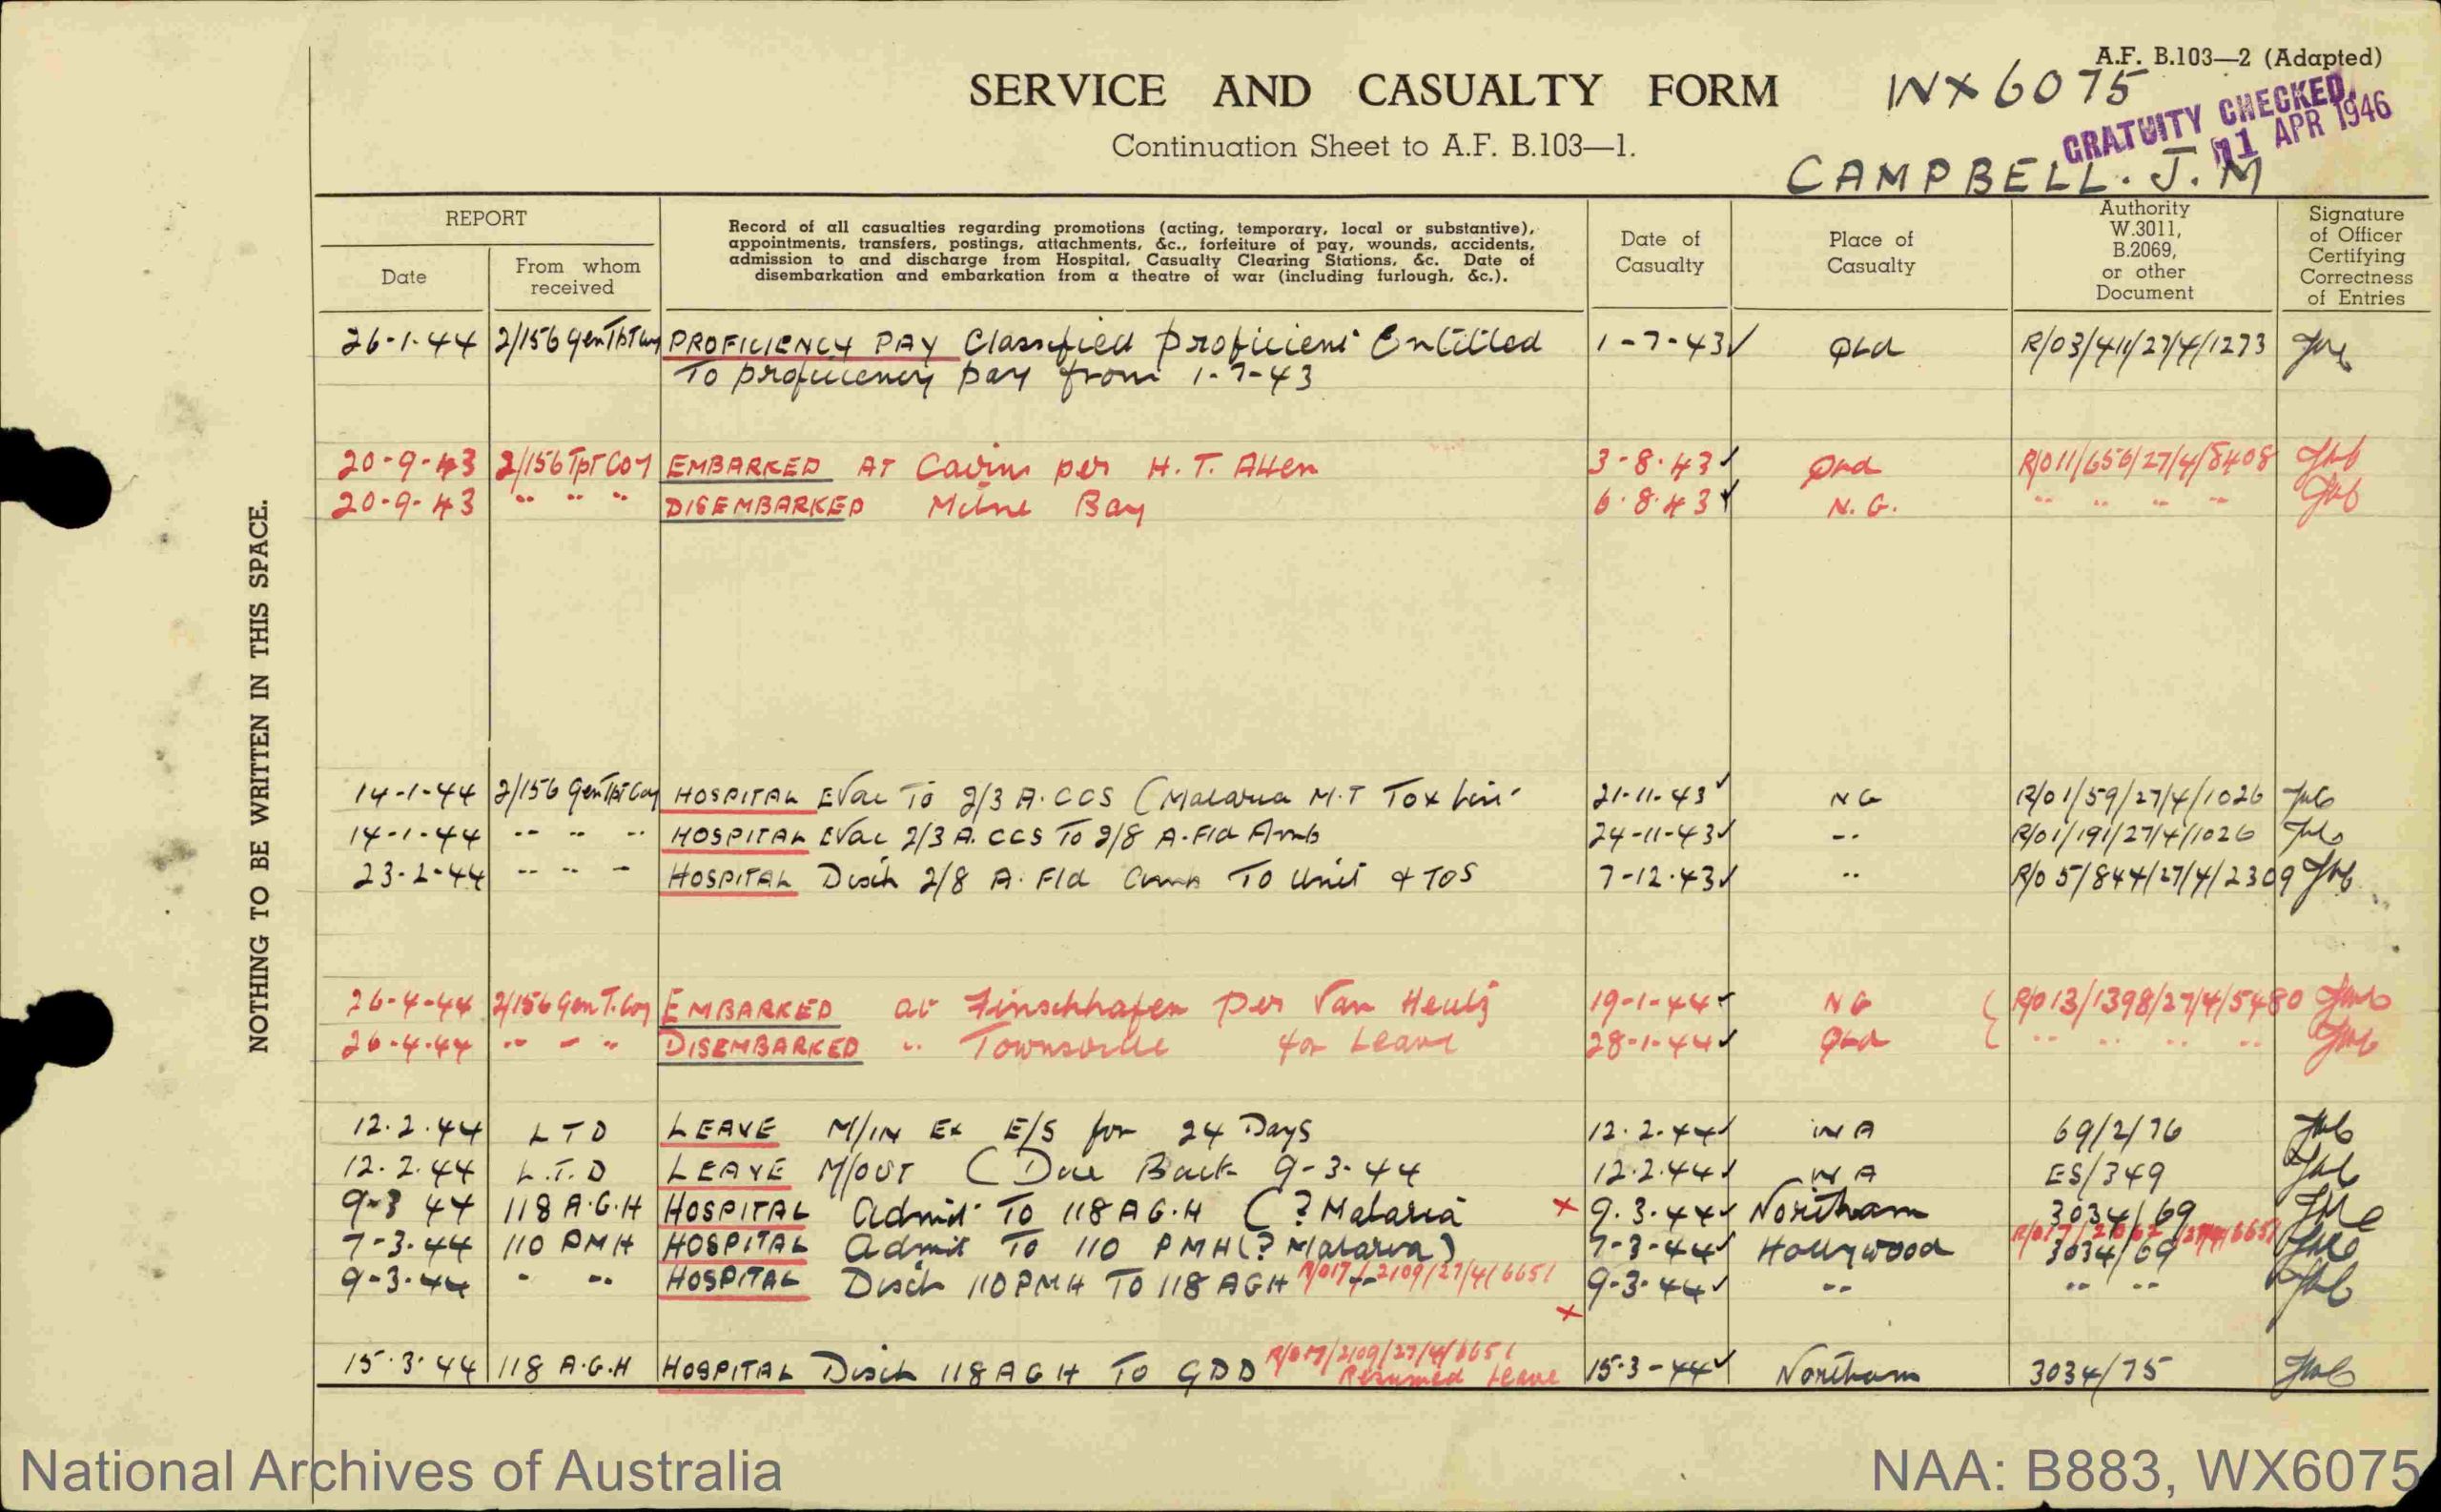 A.F. B.103—2 (Adapted)
SERVICE AND CASUALTY FORM WX6075
GRATUITY CHECKED
11 APR 1946
Continuation Sheet to A.F. B.103—1.
CAMPBELL. J. M
REPORT
Date
From whom received
Record of all casualties regarding promotions (acting, temporary, local or substantive),
appointments, transfers, postings, attachments, &c., forfeiture of pay, wounds, accidents,
admission to and discharge from Hospital, Casualty Clearing Stations, &c. Date of
disembarkation and embarkation from a theatre of war (including furlough, &c.).
Date of Casualty
Place of Casualty
Authority W.3011, B.2069, or other Document
Signature of Officer Certifying Correctness of Entries
26-1-44 2/156 Gen Tpt Coy PROFICIENCY PAY Classified Proficient Entitled 1-7-43 Qld R/03/411/27/4/1273
To proficiency pay from 1-7-43
20-9-43 2/156 Tpt Coy EMBARKED AT Cairns per H. T. Allen 3-8-43 Qld R/011/656/27/4/8408
20-9-43 " " " DISEMBARKED Milne Bay 6.8.43 N.G. " " " "
14-1-44 2/156 Gen Tpt Coy HOSPITAL Evac To 2/3 A.CCS (Malaria M.T 21-11-43 NG R/01/59/27/4/1026
14-1-44 " " " HOSPITAL Evac 2/3 A. CCS To 2/8 A. Fld Amb 24-11-43 " R/01/191/27/4/1026
23-2-44 " " " HOSPITAL Disch 2/8 A. Fld To Unit & TOS 7-12-43 " R/05/844/27/4/2309
26-4-44 2/156 Gen T. Coy EMBARKED at Finschhafen per Van Heutz 19-1-44 NG R/013/1398/27/4/5480
26-4-44 " " " DISEMBARKED " Townsville for Leave 28-1-44 Qld " " " "
12.2.44 LTD LEAVE M/IN Ex E/S for 24 Days 12.2.44 WA 69/2/76
12.2.44 L.T.D LEAVE M/OUT (Due Back 9-3-44 12.2.44 WA ES/349
9-3 44 118 A.G.H HOSPITAL Admit To 118 AG.H (? Malaria x 9.3.44 Northam 3034/69
7-3-44 110 PMH HOSPITAL Admit To 110 PMH (? Malaria) 7-3-44 Hollywood 3034/69
9-3-44 " " HOSPITAL Disch 110 PMH To 118 AGH R/017/2109/27/4/6651 9-3-44 " " "
x
15.3.44 118 A.G.H HOSPITAL Disch 118 AGH To GDD R/017/2109/27/4/6651 Resumed Leave 15-3-44 Northam 3034/75
NOTHING TO BE WRITTEN IN THIS SPACE.
National Archives of Australia
NAA: B883, WX6075